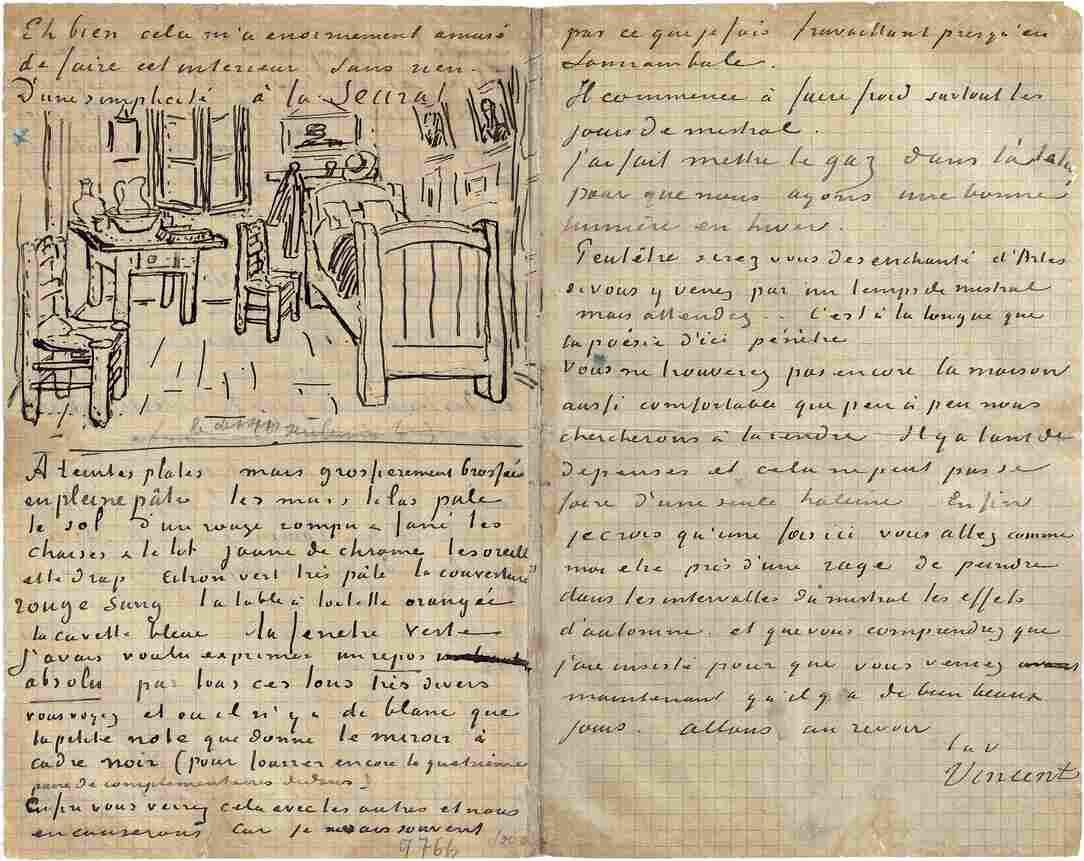 Eh bien cela m'a enormement amusé
de faire cet interieur sans rien.
D'une simplicité à la Seurat
A teintes plates mais grossierement brossée
en pleine pâte les murs lilas pale
le sol d'un rouge rompu & fané les
chaises & le lit jaune de chrome les oreill
et le drap citron vert très pâle la couverture
rouge sang la table à toilette orangée
la cuvette bleue la fenetre verte
j'avais voulu exprimer un repos
absolu par tous ces tons très divers
vous voyez et où il n'y a de blanc que
la petite note que donne le miroir à
cadre noir (pour fourrer encore la quatrième
paire de complementaires dedans)
Enfin vous verrez cela avec les autres et nous
en causerons car je ne sais souvent
9766
par ce que je fais travaillant presqu'en
somnambule.
Il commence à faire froid surtout les
jours de mistral.
j'ai fait mettre le gaz dans l'atelier
pour que nous ayons une bonne
lumière en hiver.
Peutêtre serez vous desenchanté d'Arles
si vous y venez par un temps de mistral
mais attendez .. C'est à la longue que
la poésie d'ici pénètre
Vous ne trouverez pas encore la maison
aussi comfortable que peu à peu nous
chercherons à la rendre Il y a tant de
depenses et cela ne peut pas se
faire d'une seule haleine Enfin
je crois qu'une fois ici vous allez comme
moi etre pris d'une rage de peindre
dans les intervalles du mistral les effets
d'automne. et que vous comprendrez que
j'aie insisté pour que vous veniez
maintenant qu'il y a de bien beaux
jours. allons, au revoir
t. à. v.
Vincent